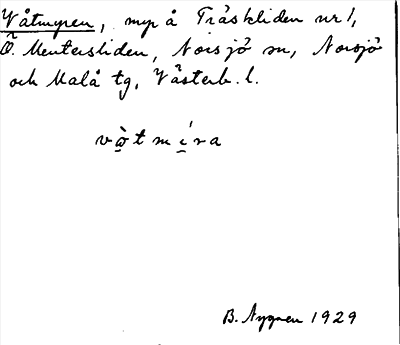 Våtmyren, myr å Träskliden nr 1,
Ö. Menträskliden, Norsjö sn, Norsjö
och Malå tg, Västerb. l.
vòtmíra
B. Nygren 1929